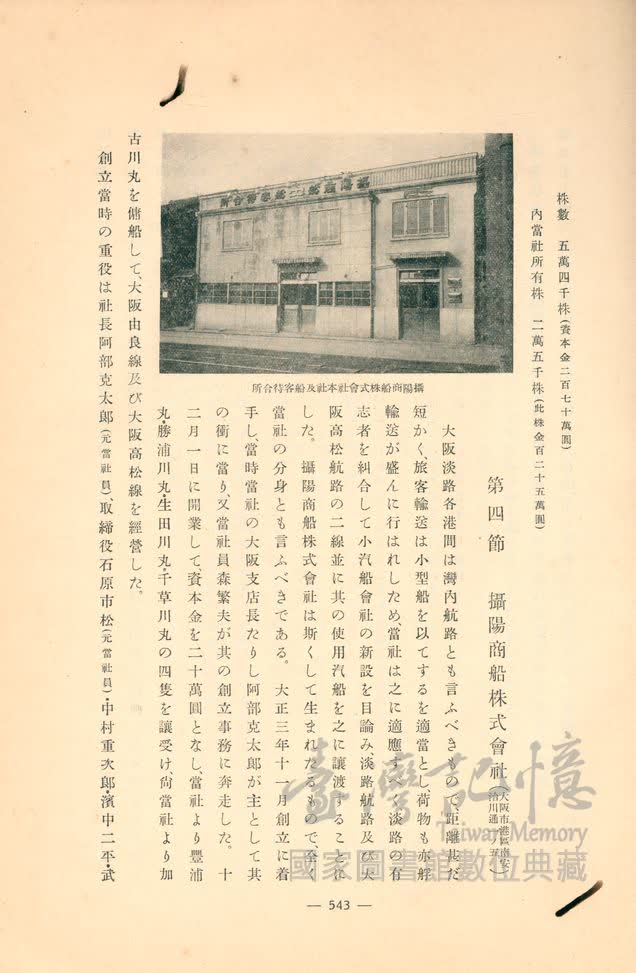 株數　五萬四千株(資本金二百七十萬圓)
內當社所有株　二萬五千株(此株金百二十五萬圓)
第四節　攝陽商船株式會社(大阪市港區南安治川通一ノ五)
大阪淡路各港間は灣內航路とも言ふべきもので、距離甚だ
短かく、旅客輸送は小型船を以てするを適當とし荷物も亦艀
輸送が盛んに行はれしため、當社は之に適應すべく淡路の有
志者を糾合して小汽船會社の新設を目論み、淡路航路及び大
阪高松航路の二線並に其の使用汽船を之に讓渡することに
した。　攝陽商船株式會社は斯くして生まれたるもので、全く
當社の分身とも言ふべきである。　大正三年十一月創立に着
手し、當時當社の大阪支店長たりし阿部克太郎が主として其
の衝に當り、又當社員森繁夫が其の創立事務に奔走した。　十
二月一日に開業して、資本金を二十萬圓となし、當社より豐浦
丸・勝浦川丸・生田川丸・千草川丸の四隻を讓受け、尙當社より加
古川丸を傭船して、大阪由良線及び大阪高松線を經營した。
創立當時の重役は社長阿部克太郎(元當社員)、取締役石原市松(元當社員)・中村重次郎・濱中二平・武
攝陽商船株式會社本社及船客待合所
— 543 —
臺灣記憶
Taiwan Memory
國家圖書館數位典藏